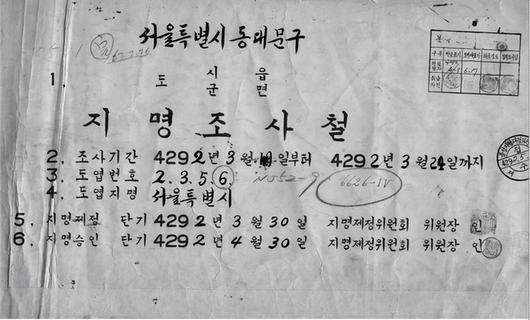 서울특별시 동대문구
1. 도 시 읍
군 면
지명조사철
2. 조사기간 4292년 3월 일부터 4292년 3월 24일까지
3. 도엽번호 2.3.5.6. N52-9 6626-IV
4. 도엽지명 서울특별시
5. 지명제정 단기 4292년 3월 30일 지명제정위원회 위원장 인
6. 지명승인 단기 4292년 4월 30일 지명제정위원회 위원장 인